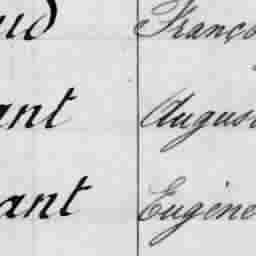 ud Franço
ant Augus
ant Eugène